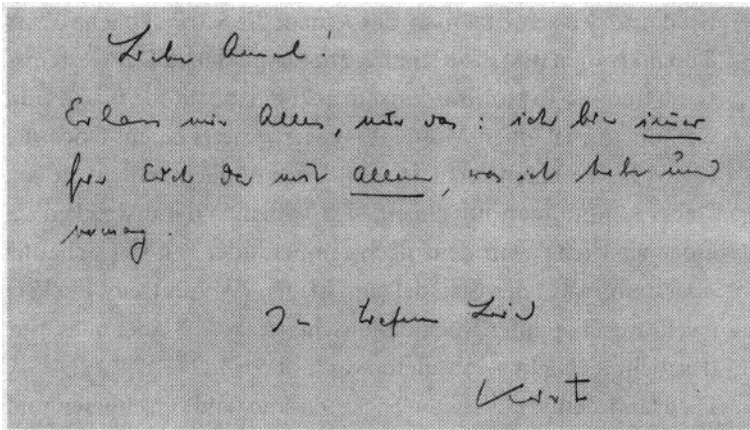 Liebe
Erlass mir Alles, nur das: ich bin immer
für Euch da mit allem, was ich habe und
vermag.
In tiefem Leid
Kurt